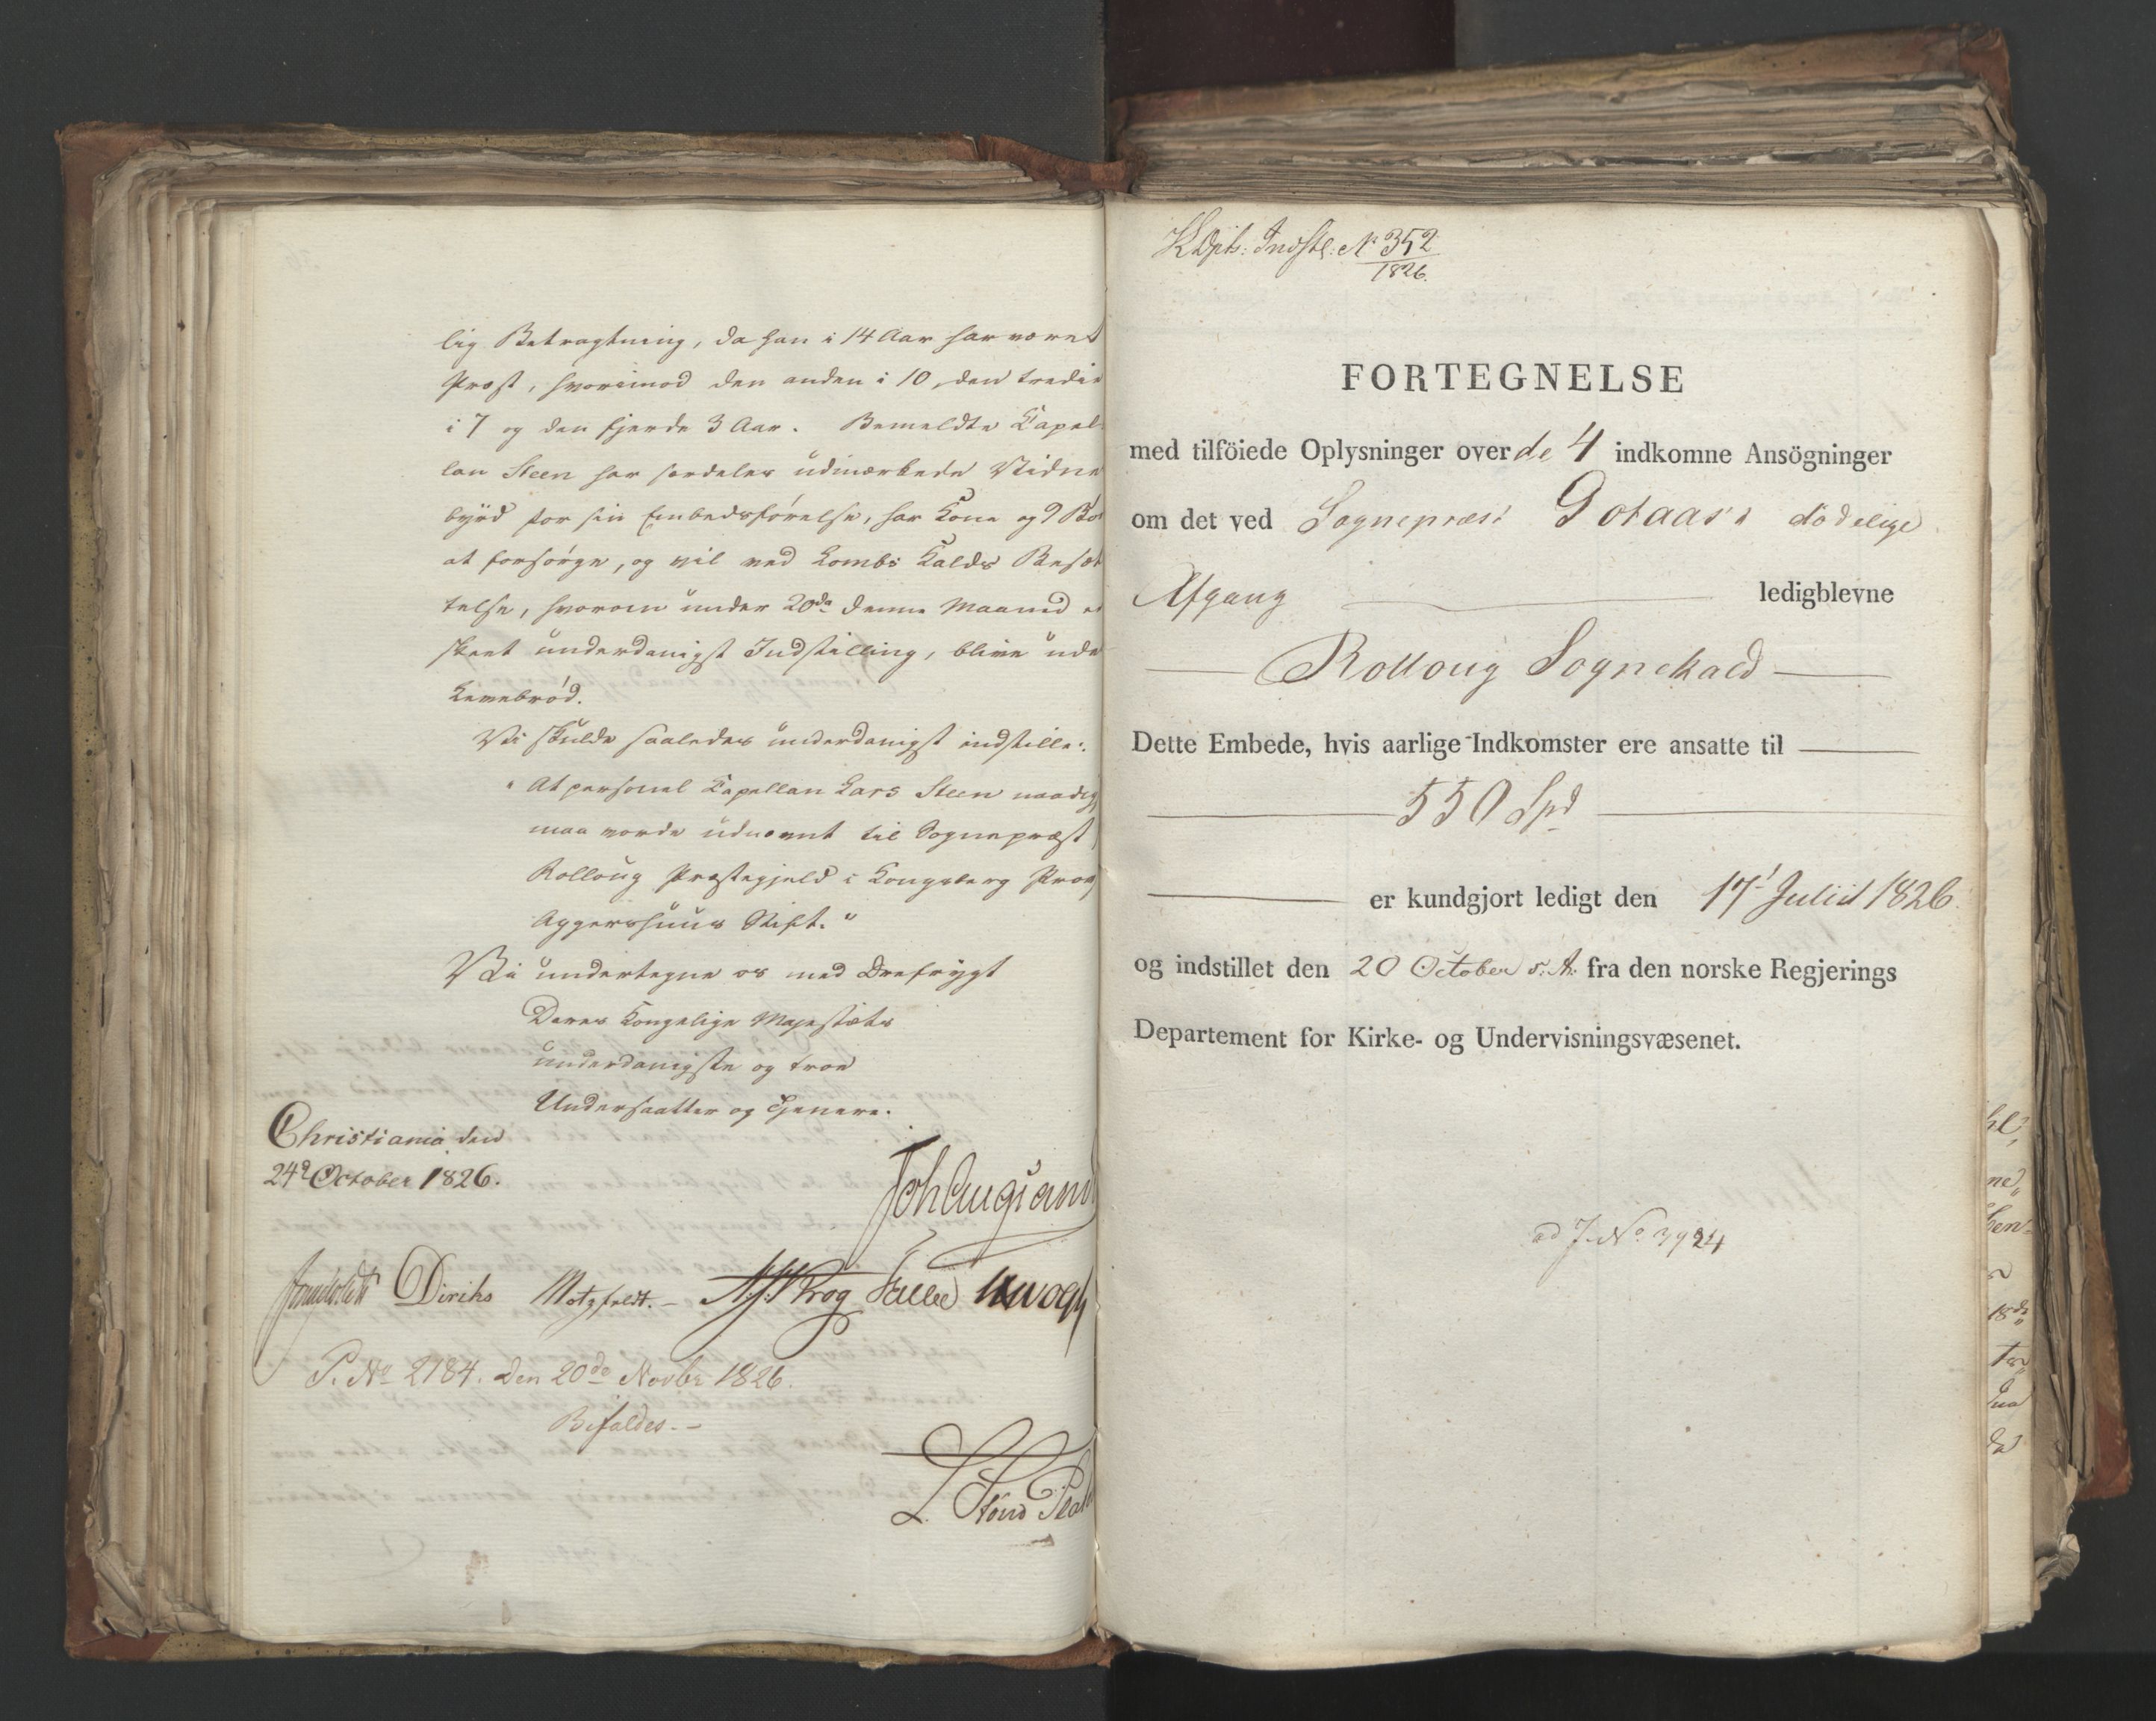 lig Betragtning, da han i 14 Aar har været
Præst, hvorimod den anden i 10, den tredie
i 7 og den fjerde 3 Aar. Bemeldte Capel-
lan Steen har særdeles udmærkede Vidne
byrd for sin Embedsførelse, har Kone og 9 Bö
at forsörge, og vil ved Lombs Kalds Besæt
telse, hvorom under 20de denne Maaned er
skeet underdanigst Indstilling, blive uden
Levebröd.
Vi skulde saaledes underdanigst indstille:
"At personel Capellan Lars Steen naadigst
maa vorde udnævnt til Sognepræst
Rolloug Præstegjeld i Kongsberg Prov
Aggershuus Stift."
Vi undertegne os med Ærefrygt
Deres Kongelige Majestæts
underdanigste og troe
Undersaatter og Tjenere.
Christiania den
24d October 1826.
Joh Aug Sand
Diriks Motzfeldt.- Krog Falbe
P. No 2184. den 20de Novbr 1826.
Bifaldes.-
KDpts: Indstl: No 352
1826.
FORTEGNELSE
med tilföiede Oplysninger over de 4 indkomne Ansögninger
om det ved Sognepræst Gotaas's dödelige
Afgang ledigblevne
Rolloug Sognekald
Dette Embede, hvis aarlige Indkomster ere ansatte til
550 Spd
er kundgjort ledigt den 17 Julii 1826
og indstillet den 20 October s. A. fra den norske Regjerings
Departement for Kirke- og Undervisningsvæsenet.
ad J. No 3924